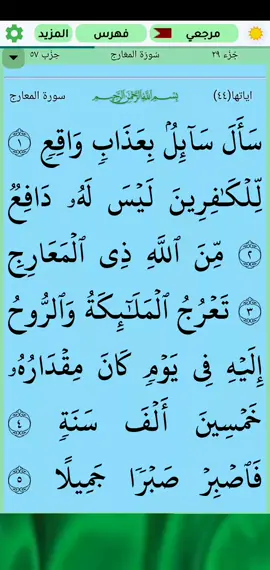 مرجعي فهرس المزيد
جُزْء ٢٩ سُورَة المَعَارج حِزْب ٥٧
اياتها(٤٤) بِسْمِ اللَّهِ الرَّحْمَٰنِ الرَّحِيمِ سورة المعارج
سَأَلَ سَآئِلُۢ بِعَذَابٖ وَاقِعٖ ١
لِّلۡكَٰفِرِينَ لَيۡسَ لَهُۥ دَافِعٞ
٢ مِّنَ ٱللَّهِ ذِي ٱلۡمَعَارِجِ
٣ تَعۡرُجُ ٱلۡمَلَٰٓئِكَةُ وَٱلرُّوحُ
إِلَيۡهِ فِي يَوۡمٖ كَانَ مِقۡدَارُهُۥ
خَمۡسِينَ أَلۡفَ سَنَةٖ ٤
فَٱصۡبِرۡ صَبۡرٗا جَمِيلًا ٥